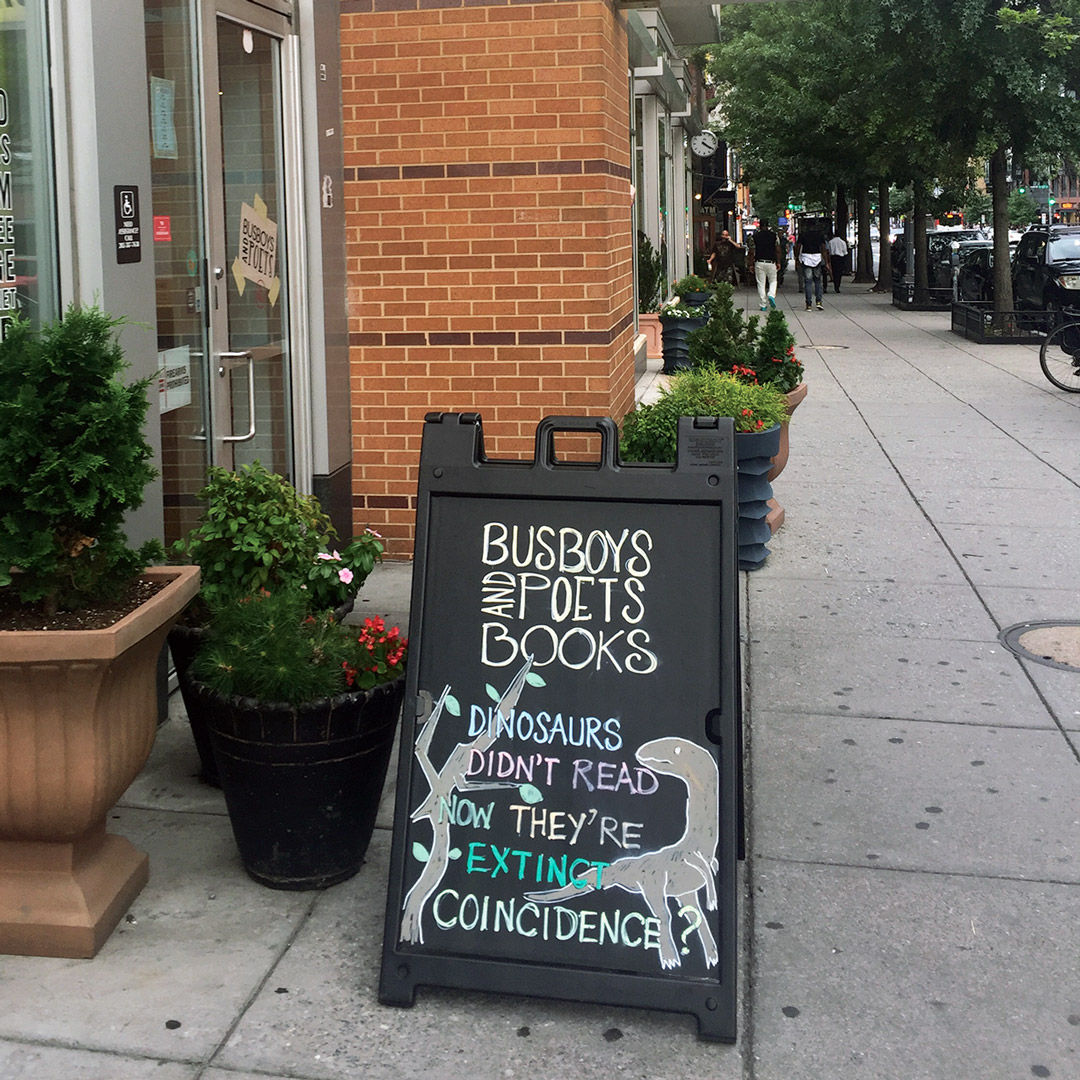 BUSBOYS
AND POETS
FIREARMS
PROHIBITED
ATM
BUSBOYS
AND POETS
BOOKS
DINOSAURS
DIDN'T READ
NOW THEY'RE
EXTINCT
COINCIDENCE?